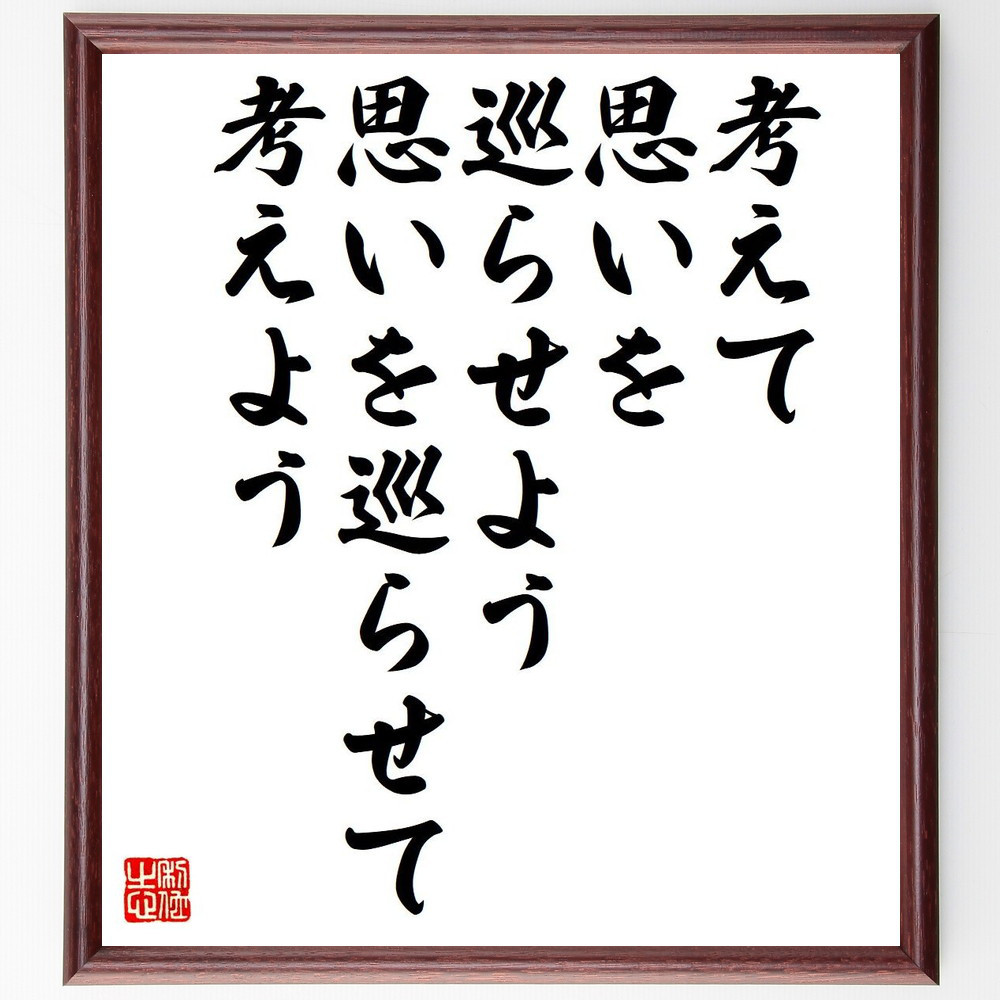 考えて
思いを
巡らせよう
思いを巡らせて
考えよう